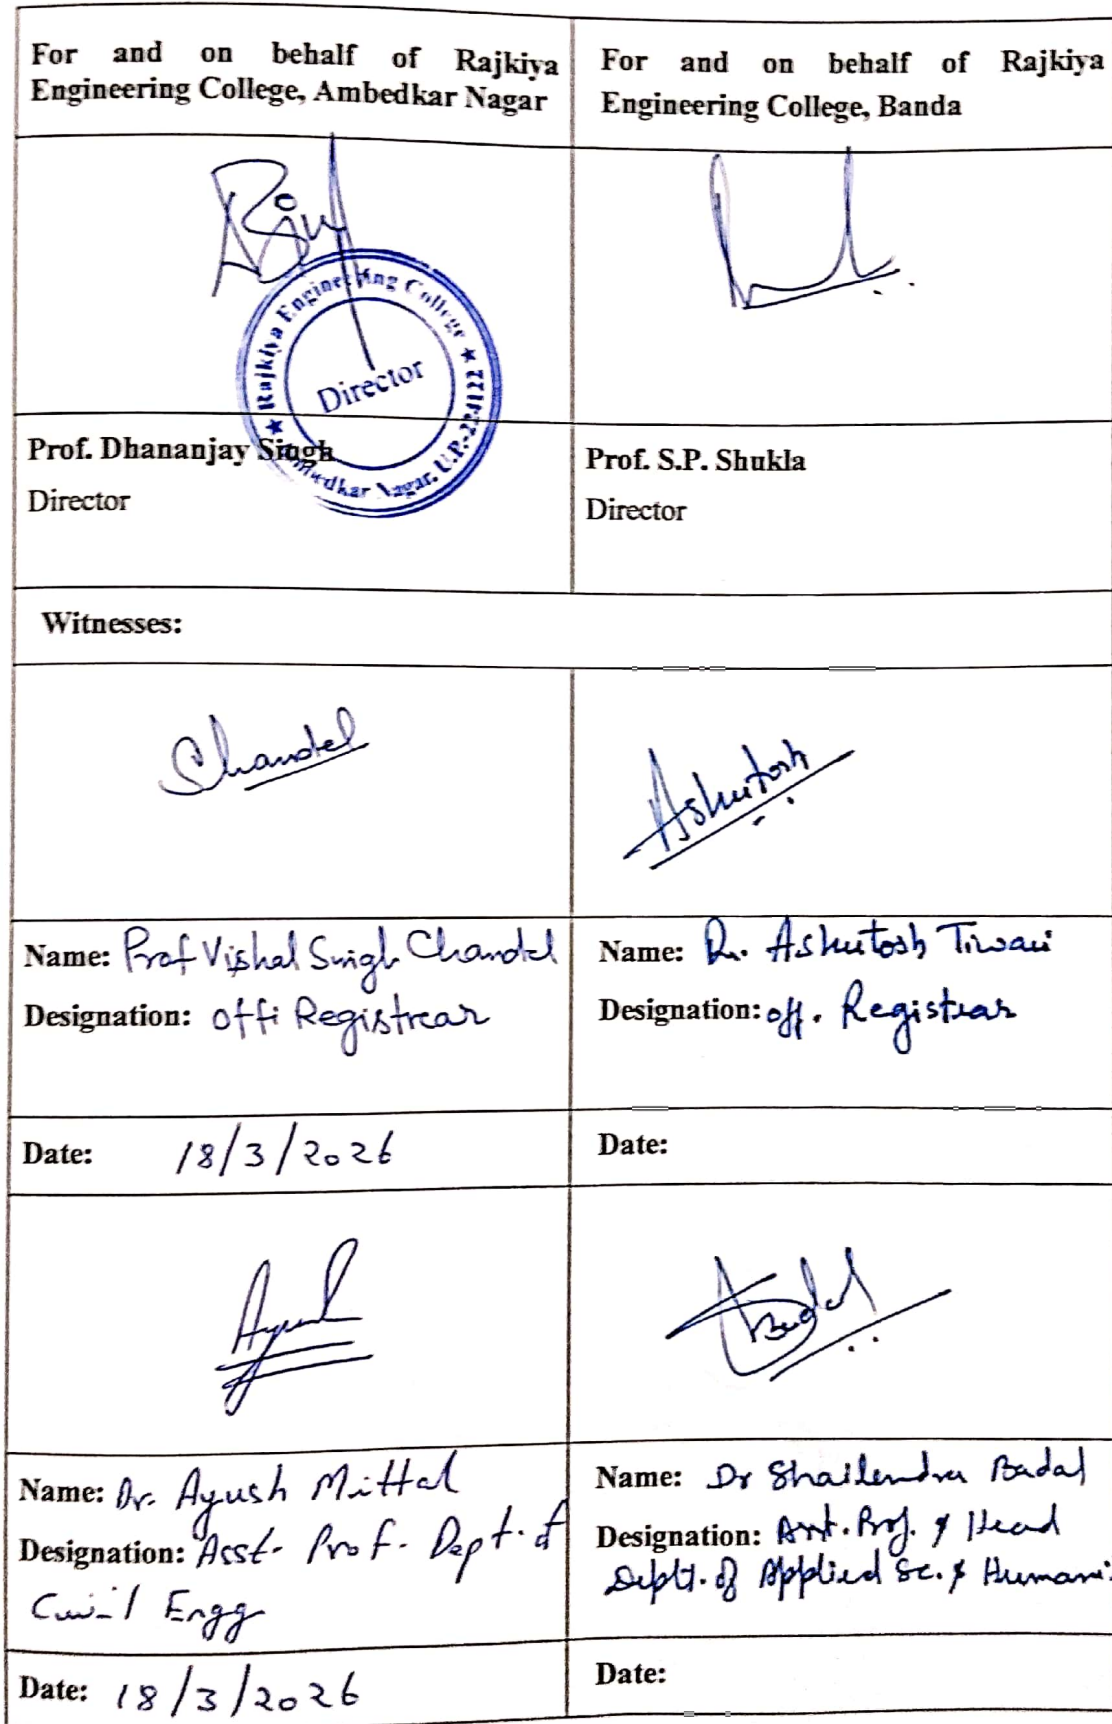 For and on behalf of Rajkiya
Engineering College, Ambedkar Nagar
For and on behalf of Rajkiya
Engineering College, Banda
Rajkiya Engineering College
Director
Ambedkar Nagar, U.P.-224122
Prof. Dhananjay Singh
Director
Prof. S.P. Shukla
Director
Witnesses:
Chandel
Ashutosh
Name: Prof Vishal Singh Chandel
Designation: offi Registrar
Name: Dr. Ashutosh Tiwari
Designation: off. Registrar
Date: 18/3/2026
Date:
Ayush
Badal
Name: Dr. Ayush Mittal
Designation: Asst. Prof. Dept. of
Civil Engg
Name: Dr Shailendra Badal
Designation: Asst. Prof. & Head
Deptt. of Applied Sc. & Humani
Date: 18/3/2026
Date: